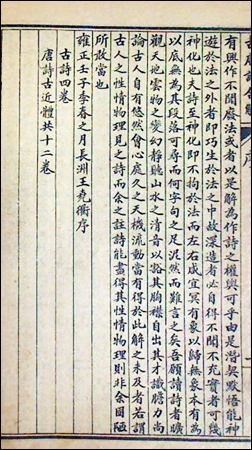 有興作不聞廢法或者以是解為作詩之權輿可乎由是潜契默悟能神
遊於法之外者即巧生於法之中故深造者必自得不聞不充實者可幾
神化也夫詩至神化即不拘於法而左右咸宜冥有象以歸無象本有為
以底無為其段落可尋而何字句之足泥然而難言之矣吾願讀詩者曠
觀天地雲物之變幻靜聽山水之清音以豁其胸襟自出其才識膽力尚
論古人自有悠然會心處久之天機流動當有得於此解之未及者若謂
古人之性情物理見之詩而余之註詩能盡得其性情物理則非余固陋
所敢當也
雍正壬子季春之月長洲王堯衢序
古詩四卷
唐詩古近體共十二卷